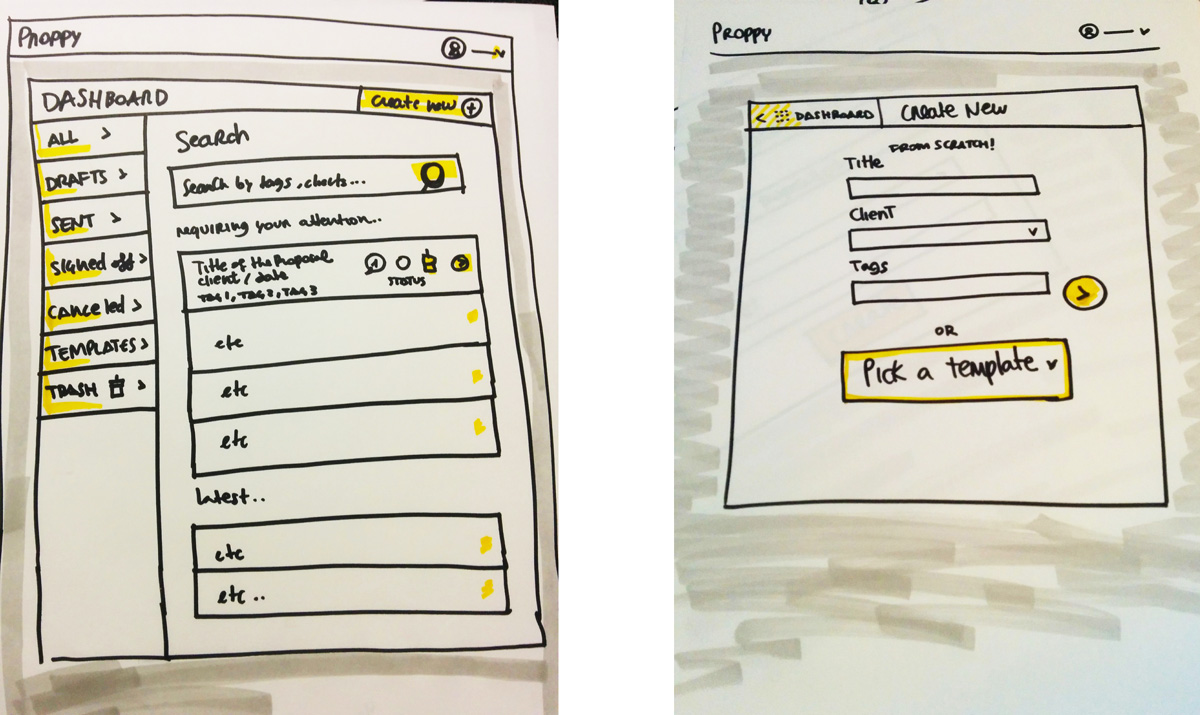 Proppy
DASHBOARD
Create new
ALL >
DRAFTS >
SENT >
Signed off >
Canceled >
TEMPLATES >
TRASH >
Search
Search by tags, clients...
requiring your attention..
Title of the Proposal
client / date
TAG 1, TAG 2, TAG 3
STATUS
etc
etc
etc
latest..
etc
etc..
Proppy
< DASHBOARD
Create New
FROM SCRATCH!
Title
Client
Tags
>
OR
Pick a template